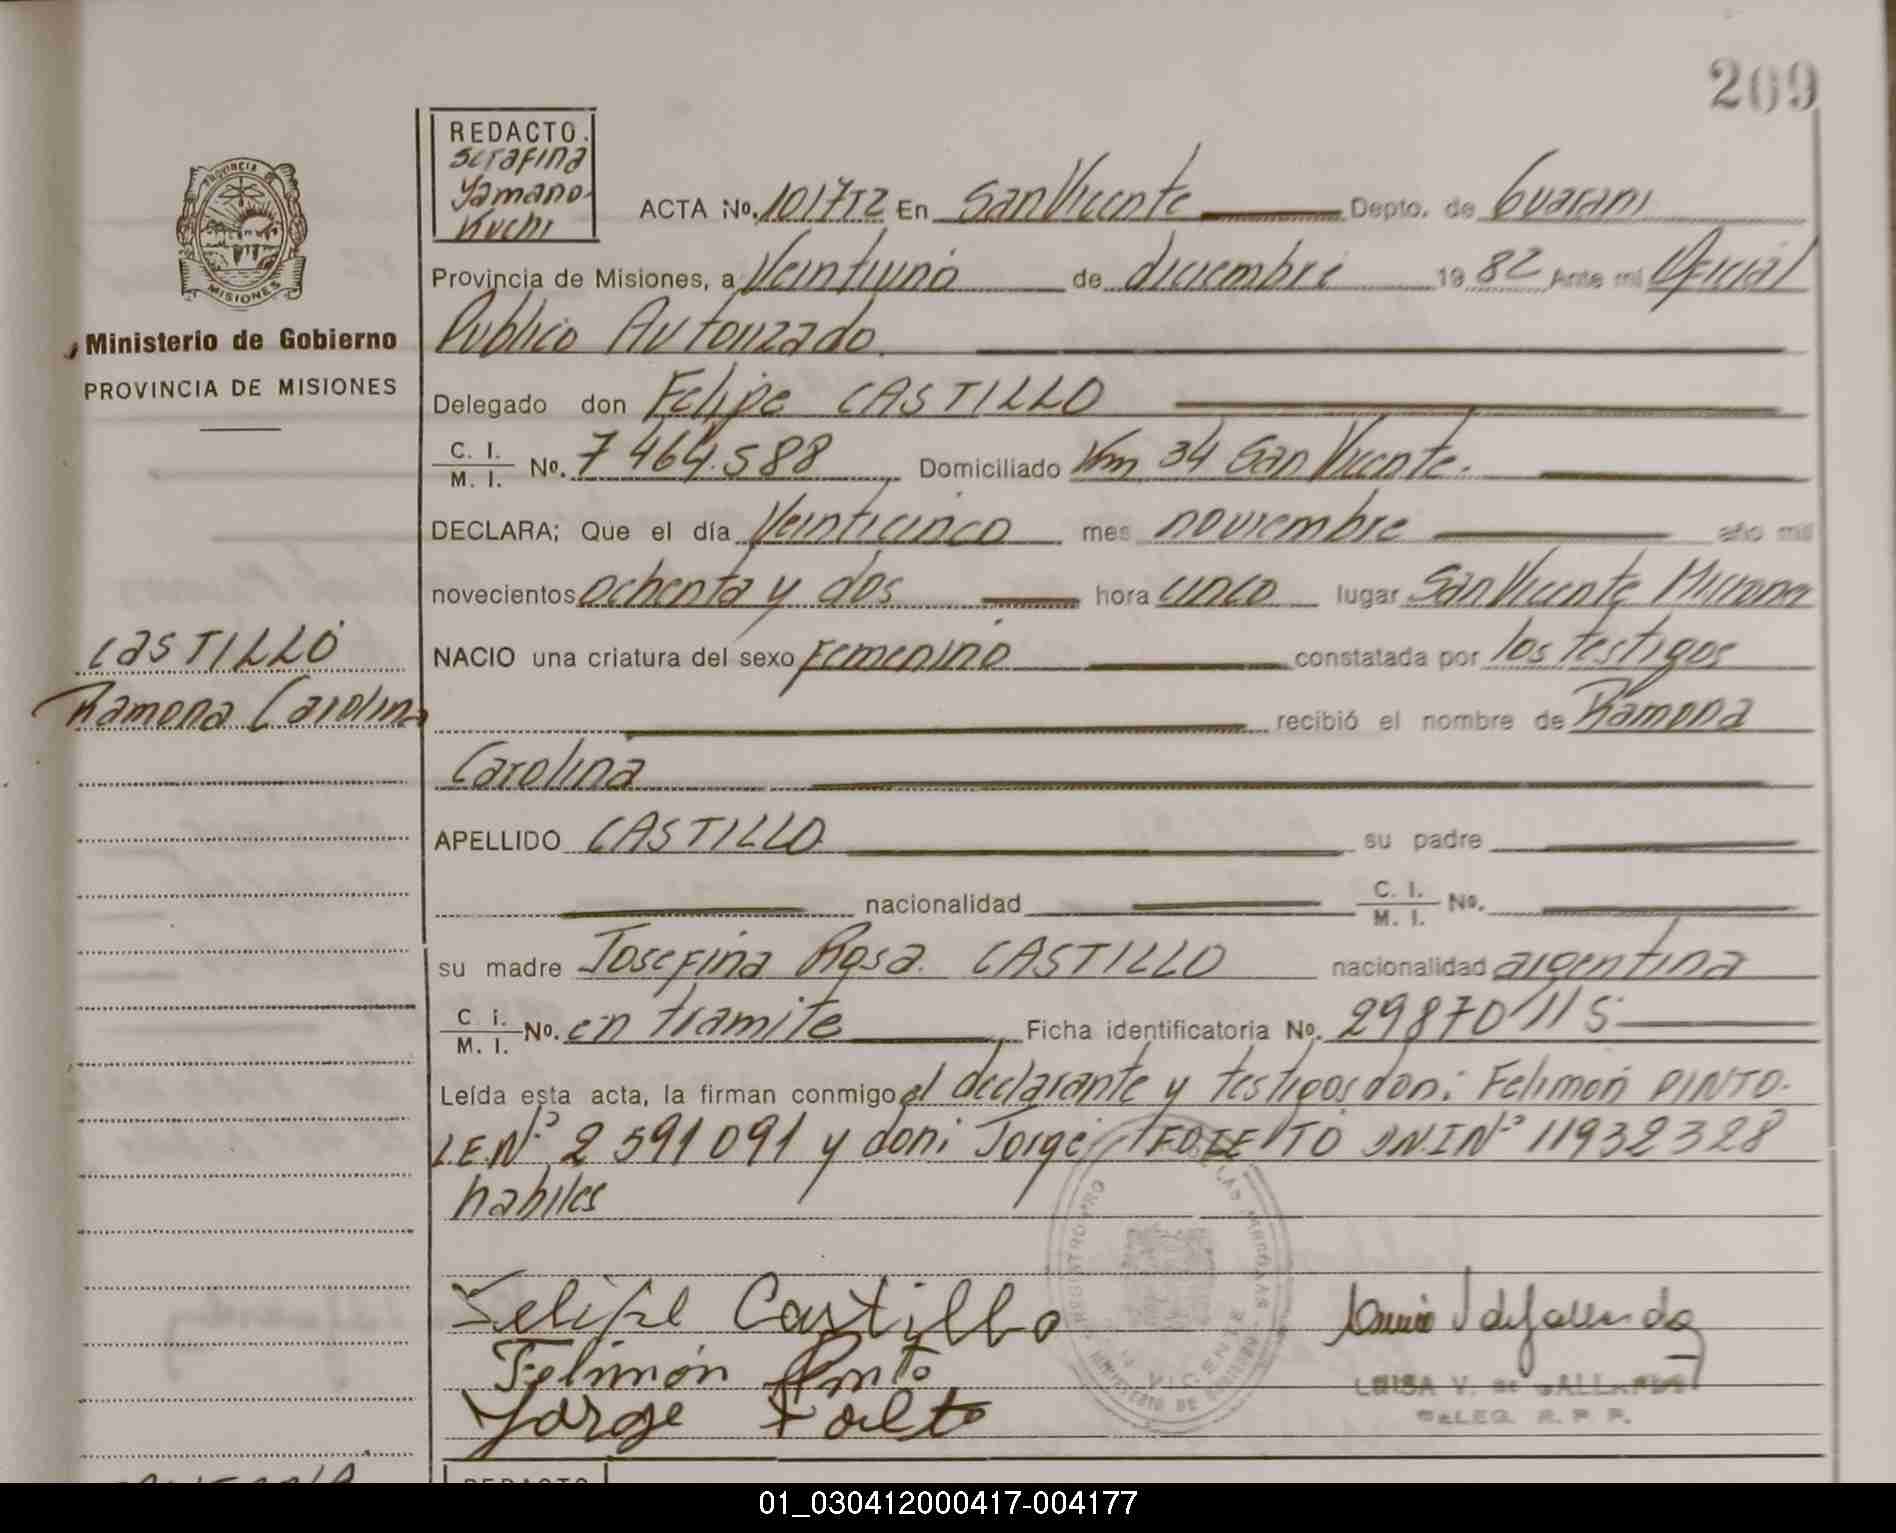 209
REDACTO.
Serafina
Yamano
Kuchi
PROVINCIA
MISIONES
Ministerio de Gobierno
PROVINCIA DE MISIONES
ACTA No. 1017T2 En San Vicente Depto. de Guarani
Provincia de Misiones, a Veintiuno de diciembre 1982 Ante mi Oficial
Publico Autorizado.
Delegado don Felipe CASTILLO
C. I. M. I. No. 7 464.588 Domiciliado Km 34 San Vicente.
DECLARA; Que el día Veinticinco mes noviembre año mil
novecientos ochenta y dos hora cinco lugar San Vicente Misiones
CASTILLO
NACIO una criatura del sexo Femenino constatada por los testigos
Ramona Carolina
recibió el nombre de Ramona
Carolina
APELLIDO CASTILLO su padre
nacionalidad C. I. M. I. No.
su madre Josefina Rosa. CASTILLO nacionalidad argentina
C i. M. I. No. en tramite Ficha identificatoria No. 29870115
Leída esta acta, la firman conmigo el declarante y testigos don: Felimón PINTO.
L.E.Nº 2 591 091 y don: Jorge D.N.I Nº 11932328
habiles
Felipe Castillo
Felimón Pinto
Jorge
LUISA V. de GALLARDO
DELEG. R. P. P.
VICENTE
REDACTO
01_030412000417-004177